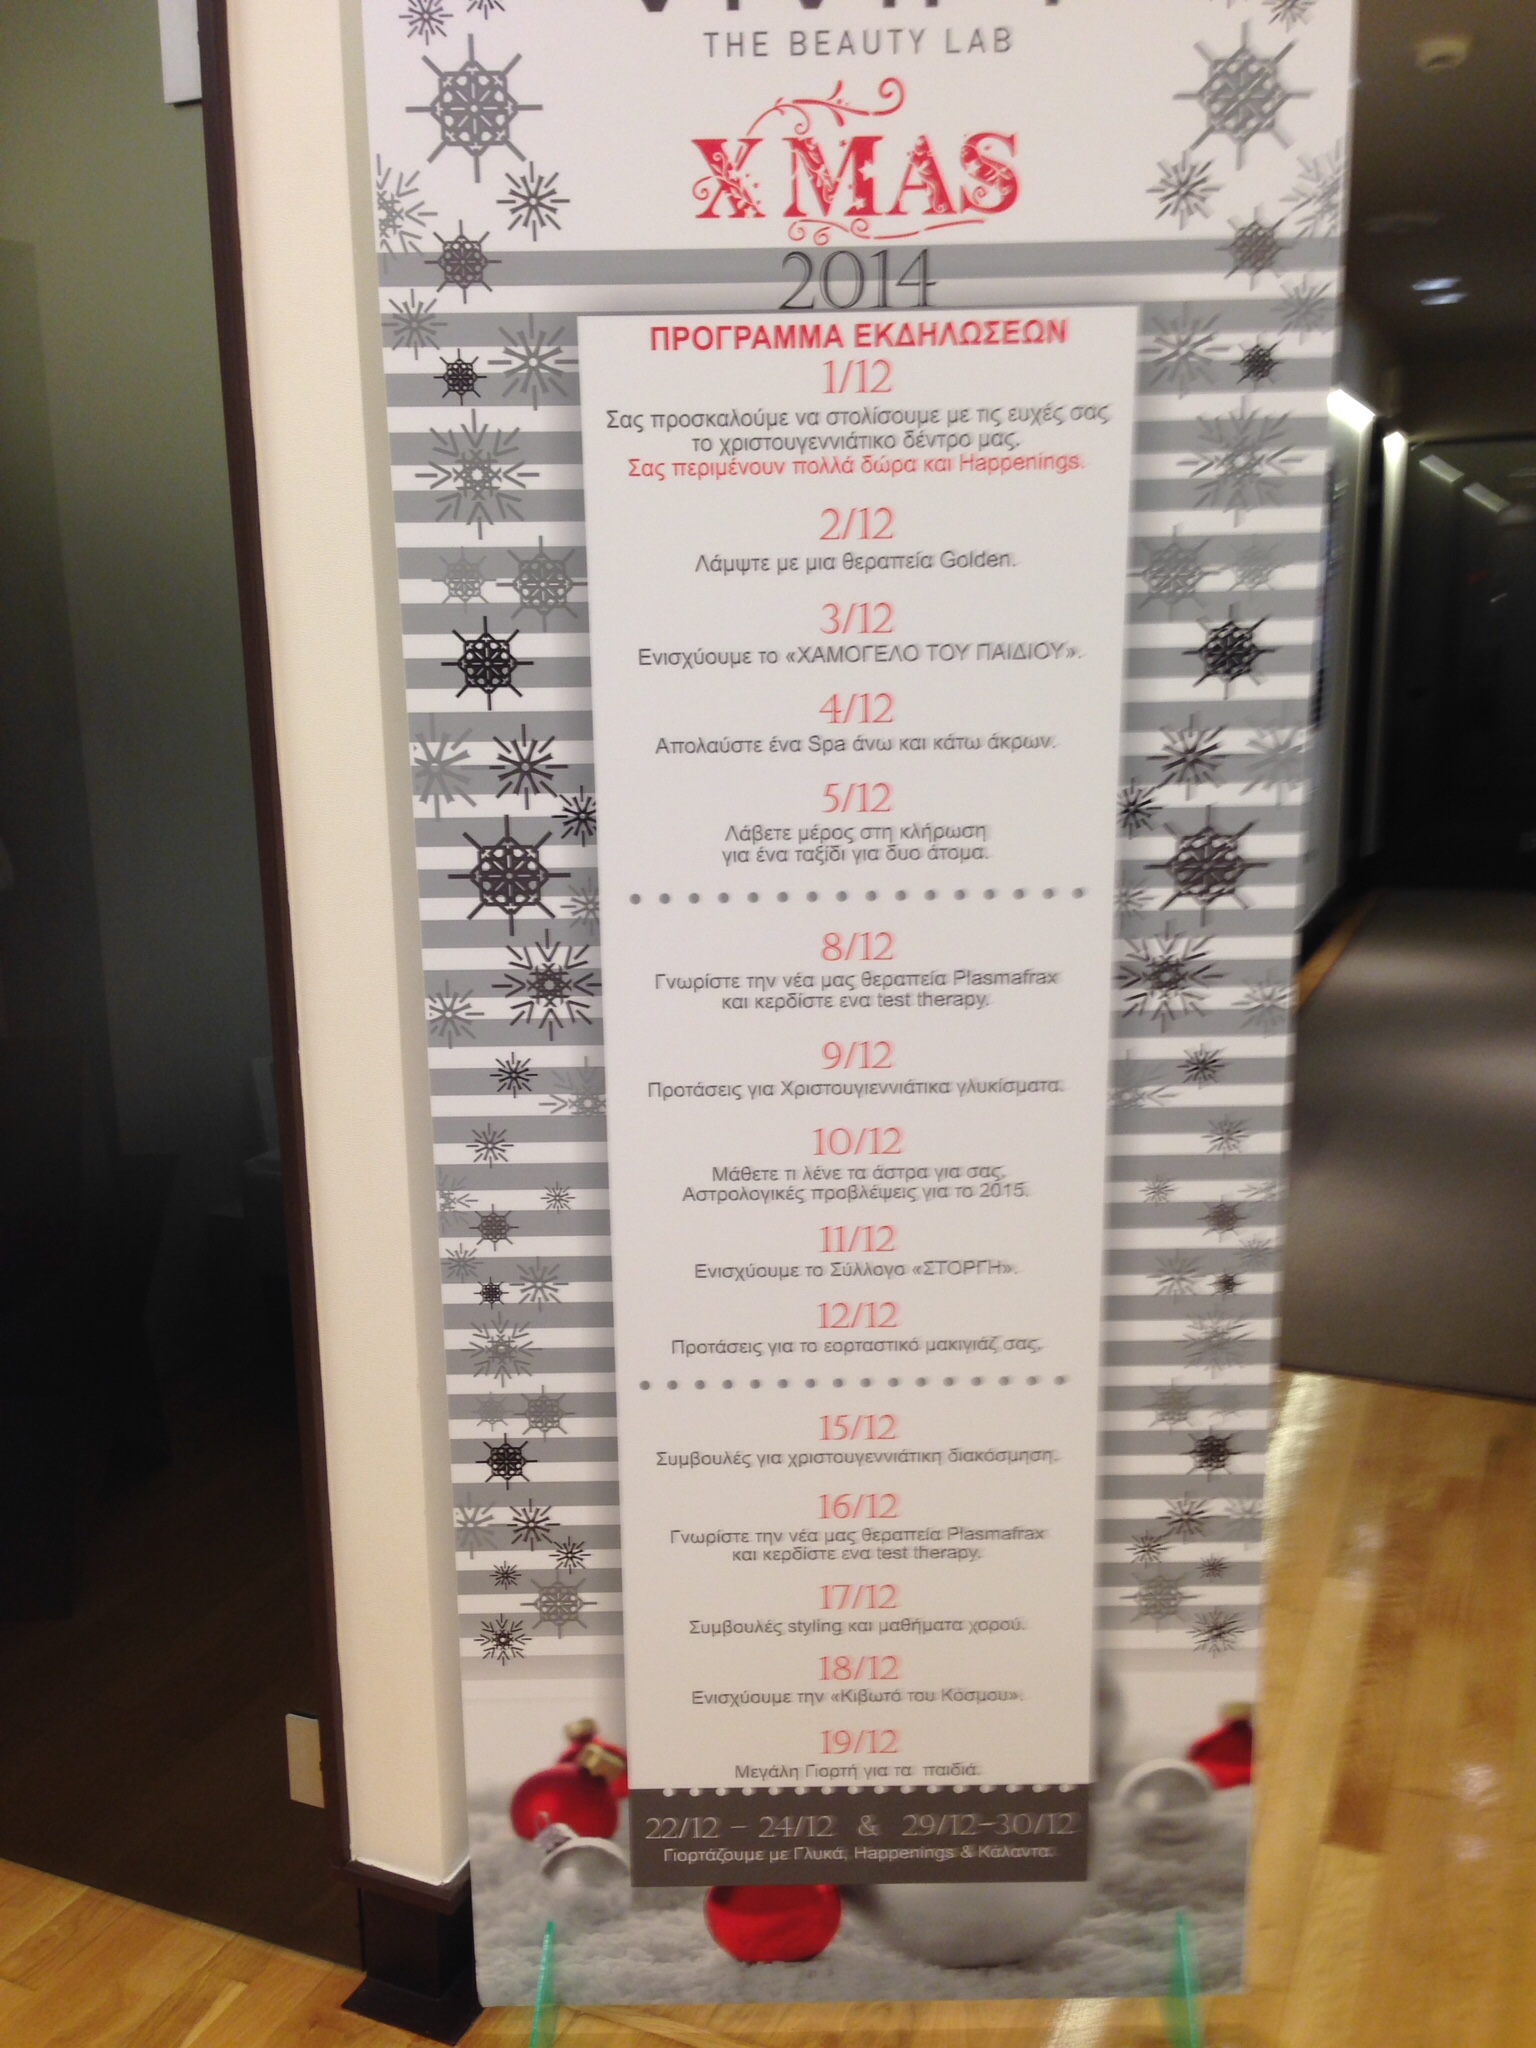 THE BEAUTY LAB
XMAS
2014
ΠΡΟΓΡΑΜΜΑ ΕΚΔΗΛΩΣΕΩΝ
1/12
Σας προσκαλούμε να στολίσουμε με τις ευχές σας
το χριστουγεννιάτικο δέντρο μας.
Σας περιμένουν πολλά δώρα και Happenings.
2/12
Λάμψτε με μια θεραπεία Golden.
3/12
Ενισχύουμε το «ΧΑΜΟΓΕΛΟ ΤΟΥ ΠΑΙΔΙΟΥ».
4/12
Απολαύστε ένα Spa άνω και κάτω άκρων.
5/12
Λάβετε μέρος στη κλήρωση
για ένα ταξίδι για δυο άτομα.
8/12
Γνωρίστε την νέα μας θεραπεία Plasmafrax
και κερδίστε ενα test therapy.
9/12
Προτάσεις για Χριστουγιεννιάτικα γλυκίσματα.
10/12
Μάθετε τι λένε τα άστρα για σας.
Αστρολογικές προβλέψεις για το 2015.
11/12
Ενισχύουμε το Σύλλογο «ΣΤΟΡΓΗ».
12/12
Προτάσεις για το εορταστικό μακιγιάζ σας.
15/12
Συμβουλές για χριστουγεννιάτικη διακόσμηση.
16/12
Γνωρίστε την νέα μας θεραπεία Plasmafrax
και κερδίστε ενα test therapy.
17/12
Συμβουλές styling και μαθήματα χορού.
18/12
Ενισχύουμε την «Κιβωτό του Κόσμου».
19/12
Μεγάλη Γιορτή για τα παιδιά.
22/12 – 24/12 & 29/12–30/12
Γιορτάζουμε με Γλυκά, Happenings & Κάλαντα.